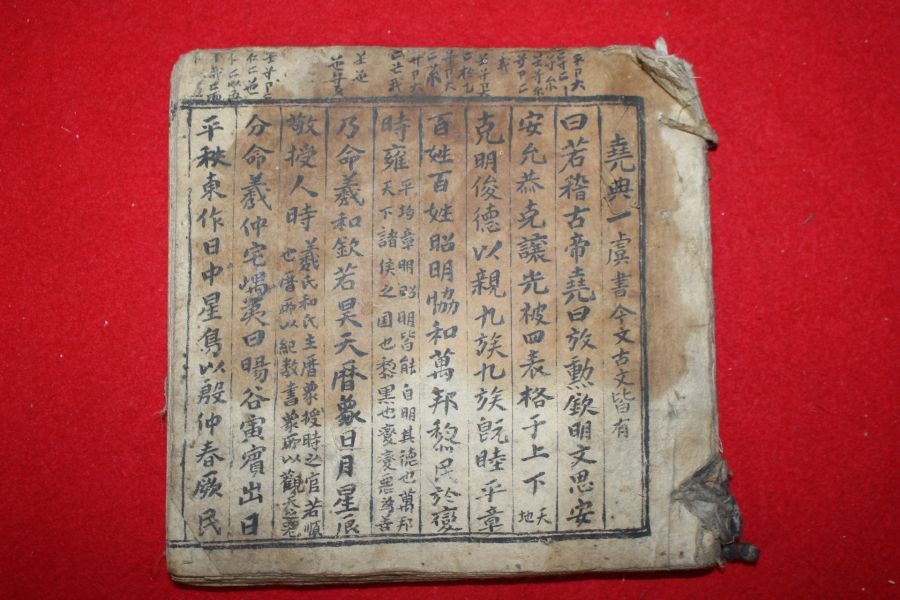 堯典一 虞書 今文古文皆有
曰若稽古帝堯曰放勲欽明文思安
安允恭克讓光被四表格于上下 天地
克明俊德以親九族九族旣睦平章
百姓百姓昭明恊和萬邦黎民於變
時雍 平均章明昭明皆能自明其德也萬邦
天下諸侯之国也黎黒也變變惡爲善
乃命羲和欽若昊天曆象日月星辰
敬授人時 羲氏和氏主曆象授時之官若順
也曆所以紀数書象所以觀天
分命羲仲宅嵎夷曰暘谷寅賓出日
平秩東作日中星鳥以殷仲春厥民